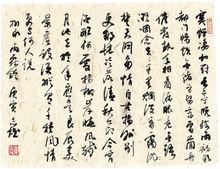 寒蟬淒切對長亭晚驟雨初歇
都門帳飲無緒留戀處蘭舟
催發執手相看淚眼竟無語
凝噎念去去千里煙波暮靄沉沉
楚天闊多情自古傷離別
更那堪冷落清秋節今宵
酒醒何處楊柳岸曉風殘
月此去經年應是良辰好
景虛設便縱有千種風情
更與何人說
柳永雨霖鈴